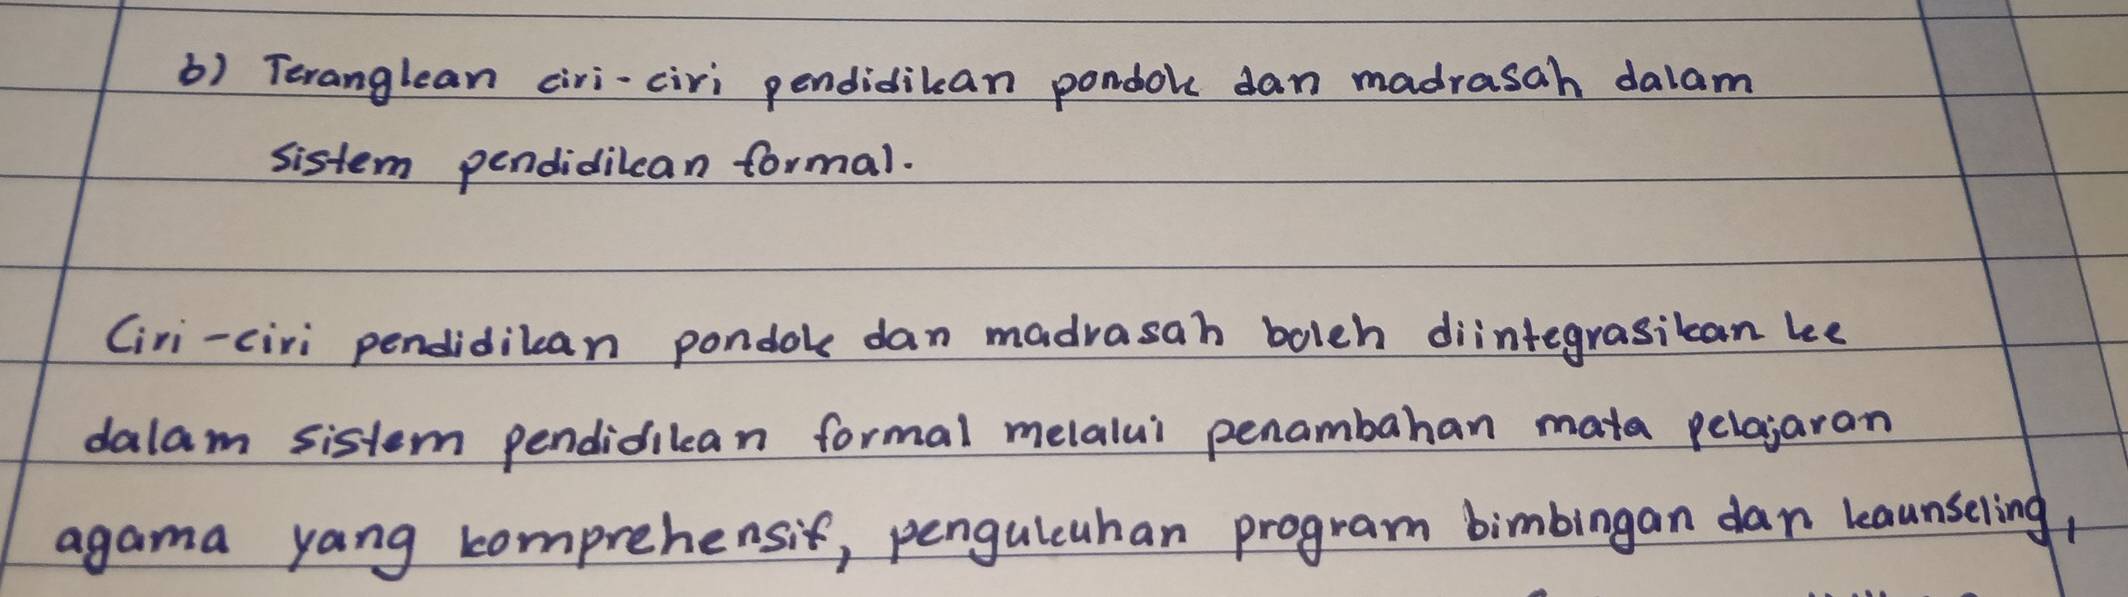 b) Terangkan ciri-ciri pendidikan pondok dan madrasah dalam
sistem pendidikan formal.
Ciri-ciri pendidikan pondok dan madrasah boleh diintegrasikan ke
dalam sistem pendidikan formal melalui penambahan mata pelajaran
agama yang komprehensif, pengukuhan program bimbingan dan kaunseling,